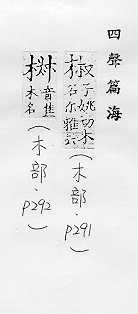 四聲篇海
椒 子姚切木
名尔雅云
(木部.p291)
音挂
木名
(木部.p292)